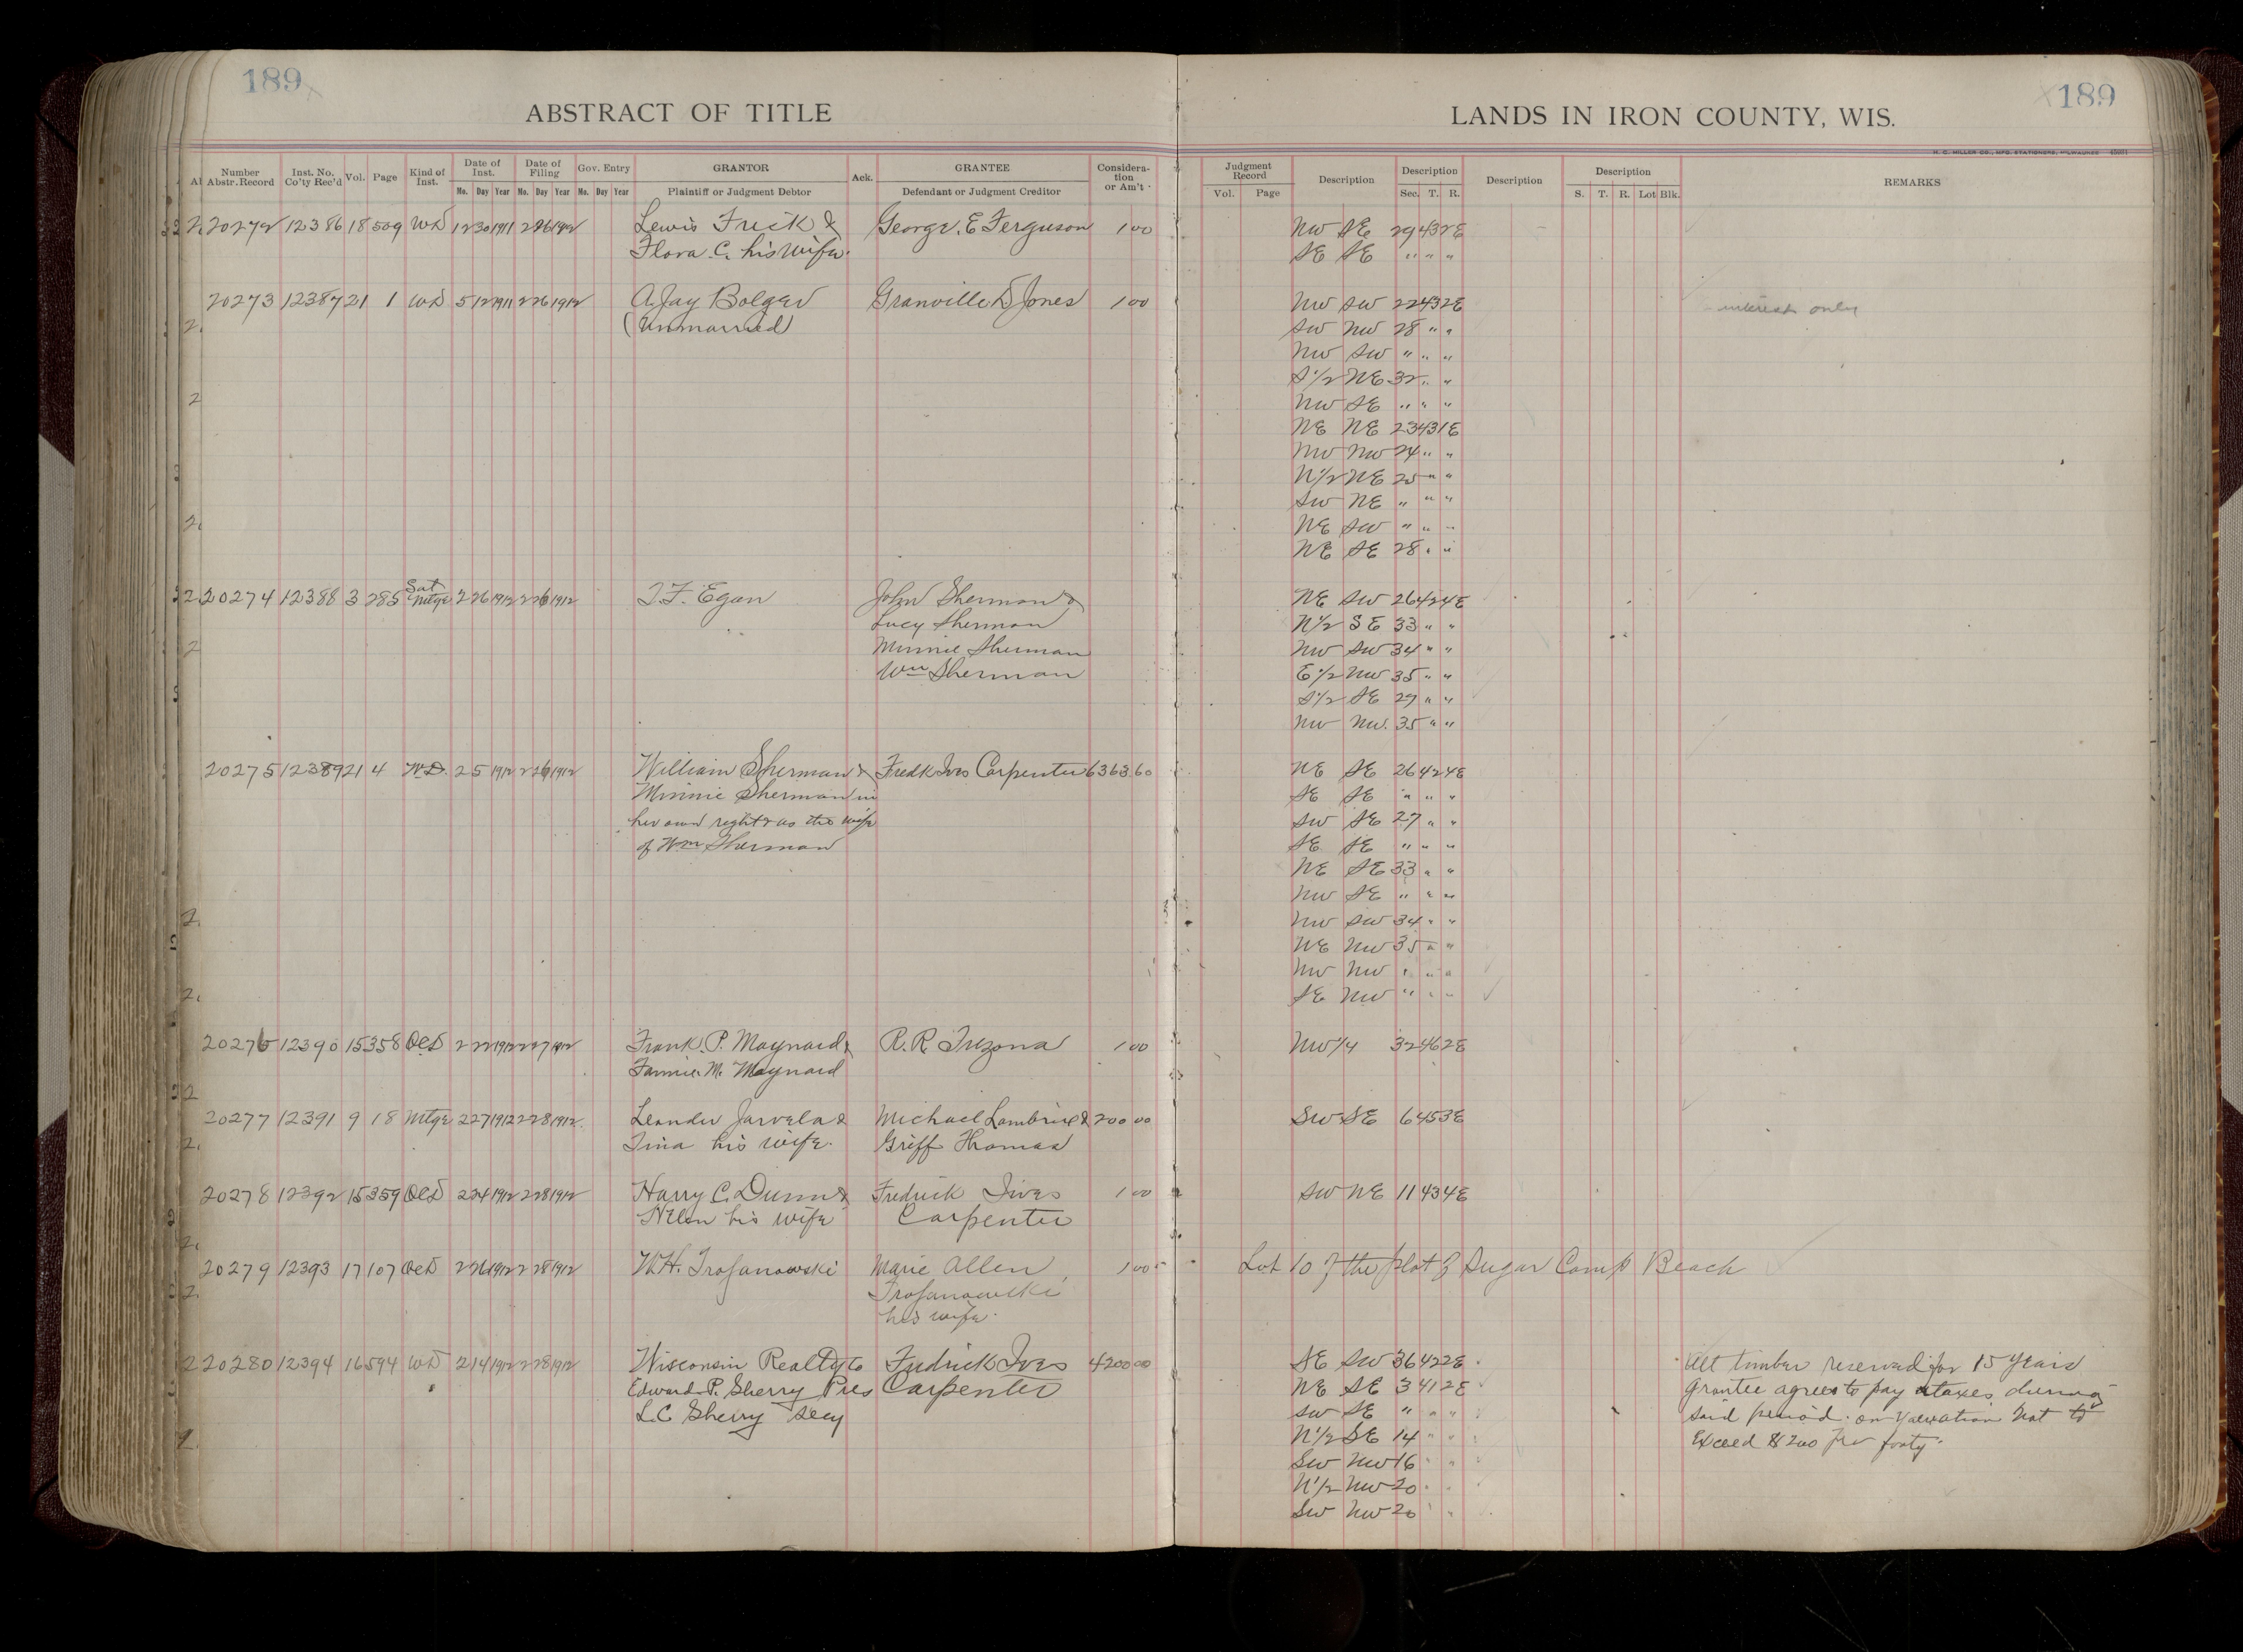 189
189
ABSTRACT OF TITLE
LANDS IN IRON COUNTY, WIS.
H. C. MILLER CO., MFG. STATIONERS, MILWAUKEE
Number Abstr. Record | Inst. No. Co'ty Rec'd | Vol. | Page | Kind of Inst. | Date of Inst. Mo. Day Year | Date of Filing Mo. Day Year | Gov. Entry Mo. Day Year | GRANTOR Plaintiff or Judgment Debtor | Ack. | GRANTEE Defendant or Judgment Creditor | Considera-tion or Am't | Judgment Record Vol. Page | Description | Description Sec. T. R. | Description | Description S. T. R. Lot Blk. | REMARKS
20272 12386 18 509 WD 12 30 1911 2 26 1912 Lewis Frick & George. E Ferguson 1 00 NW SE 29 43 2E
Flora. C. his wife. SE SE " " "
20273 12387 21 1 WD 5 12 1911 2 26 1912 A. Jay Bolger Granville D Jones 1 00 NW SW 22 43 2E interest only
(Unmarried) SW NW 28 " "
NW SW " " "
S1/2 NE 32 " "
NW SE " " "
NE NE 23 43 1E
NW NW 24 " "
N1/2 NE 25 " "
SW NE " " "
NE SW " " "
NE SE 28 " "
20274 12388 3 285 Sat Mtge 2 26 1912 2 26 1912 T. F. Egan John Sherman & NE SW 26 42 4E
Lucy Sherman N1/2 SE 33 " "
Minnie Sherman NW SW 34 " "
Wm Sherman E1/2 NW 35 " "
S1/2 SE 27 " "
NW NW. 35 " "
20275 12389 21 4 W.D. 2 5 1912 2 26 1912 William Sherman & Fredk Ives Carpenter 6363.60 NE SE 26 42 4E
Minnie Sherman in SE SE " " "
her own right & as the wife SW SE 27 " "
of Wm Sherman SE SE " " "
NE SE 33 " "
NW SE " " "
NW SW 34 " "
NE NW 35 " "
NW NW " " "
SE NW " " "
20276 12390 15 358 QCD 2 22 1912 2 27 1912 Frank. P. Maynard & R. R. Tuzona 1 00 NW1/4 32 46 2E
Fannie. M. Maynard
20277 12391 9 18 Mtge 2 27 1912 2 28 1912 Leander Jarvela & Michael Lambrix & 200 00 SW SE 6 45 3E
Tina his wife. Griff Thomas
20278 12392 15 359 QCD 2 24 1912 2 28 1912 Harry C. Dunn & Fredrick Ives 1 00 SW NE 11 43 4E
Helen his wife Carpenter
20279 12393 17 107 QCD 2 26 1912 2 28 1912 W.H. Trojanowski Marie Allen 1 00 Lot 10 of the plat of Sugar Camp Beach
Trojanowski
his wife.
20280 12394 16 594 WD 2 14 1912 2 28 1912 Wisconsin Realty Co Fredrick Ives 4200 00 SE SW 36 42 2E All timber reserved for 15 years
Edward. P. Sherry Pres Carpenter NE SE 3 41 2E Grantee agrees to pay taxes during
L.C. Sherry Secy SW SE " " " said period. on valuation not to
N1/2 SE 14 " " Exceed $200 per forty.
SW NW 16 " "
N1/2 NW 20 " "
SW NW 20 " "